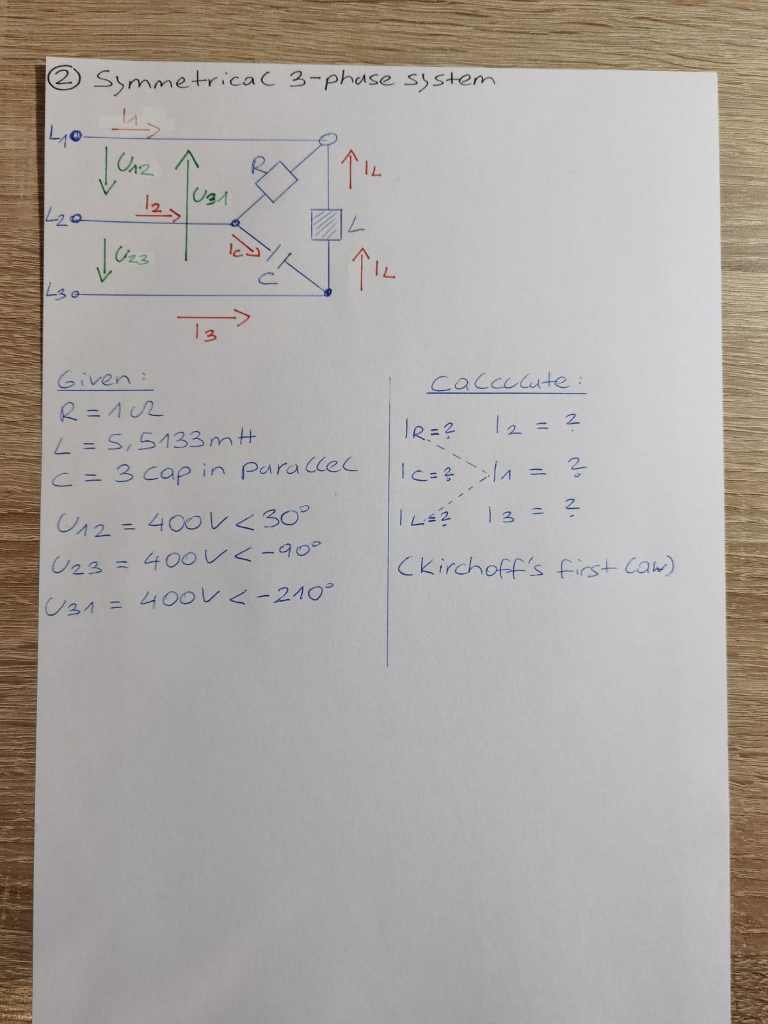 ② Symmetrical 3-phase system
I1
L1
U12
R
IL
I2
U31
L2
L
U23
IC
C
IL
L3
I3
Given:
R = 1Ω
L = 5,5133mH
C = 3 cap in parallel
U12 = 400V < 30°
U23 = 400V < -90°
U31 = 400V < -210°
Calculate:
IR=? I2 = ?
IC=? I1 = ?
IL=? I3 = ?
(Kirchoff's first law)